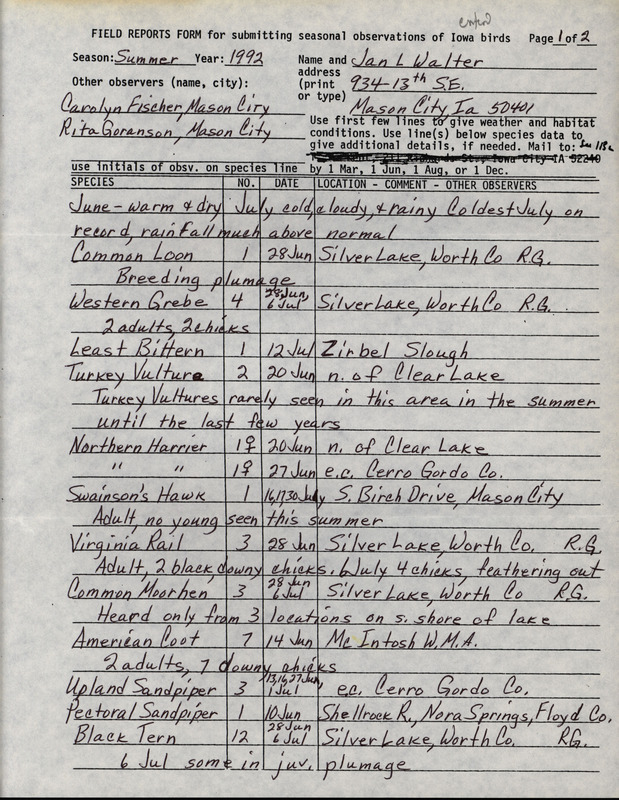 FIELD REPORTS FORM for submitting seasonal observations of Iowa birds Page 1 of 2
Season: Summer Year: 1992
Name and Jan L Walter
address 934-13th S.E.
(print
or type) Mason City Ia 50401
Other observers (name, city):
Carolyn Fischer, Mason City
Rita Goranson, Mason City
Use first few lines to give weather and habitat
conditions. Use line(s) below species data to
give additional details, if needed. Mail to:
Iowa City IA 52240
use initials of obsv. on species line by 1 Mar, 1 Jun, 1 Aug, or 1 Dec.
SPECIES NO. DATE LOCATION - COMMENT - OTHER OBSERVERS
June - warm & dry July cold, cloudy, & rainy Coldest July on
record, rainfall much above normal
Common Loon 1 28 Jun Silver Lake, Worth Co R.G.
Breeding plumage
Western Grebe 4 28 Jun, 6 Jul Silver Lake, Worth Co R.G.
2 adults, 2 chicks
Least Bittern 1 12 Jul Zirbel Slough
Turkey Vulture 2 20 Jun n. of Clear Lake
Turkey Vultures rarely seen in this area in the summer
until the last few years
Northern Harrier 1♀ 20 Jun n. of Clear Lake
" " 1♀ 27 Jun e.c. Cerro Gordo Co.
Swainson's Hawk 1 16,17,30 July S. Birch Drive, Mason City
Adult, no young seen this summer
Virginia Rail 3 28 Jun Silver Lake, Worth Co. R.G.
Adult, 2 black, downy chicks. 6 July 4 chicks, feathering out
Common Moorhen 3 28 Jun 6 Jul Silver Lake, Worth Co R.G.
Heard only from 3 locations on s. shore of lake
American Coot 7 14 Jun Mc Intosh W.M.A.
2 adults, 7 downy chicks
Upland Sandpiper 3 13,16,27 Jun, 1 Jul e.c. Cerro Gordo Co.
Pectoral Sandpiper 1 10 Jun Shellrock R., Nora Springs, Floyd Co.
Black Tern 12 28 Jun 6 Jul Silver Lake, Worth Co. R.G.
6 Jul some in juv. plumage